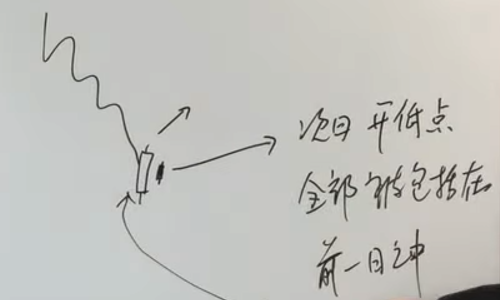 次日开低点
全部被包括在
前一日之中